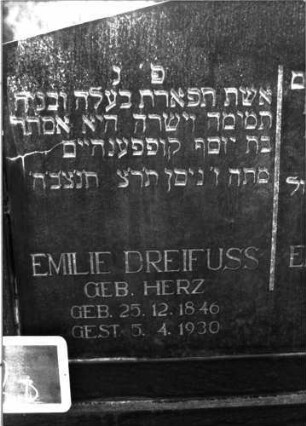 פ׳ נ
אשת תפארת בעלה ובניה
תמימה וישרה היא אסתר
בת יוסף קופפענהיים
מתה ו׳ ניסן תרצ תנצבה
EMILIE DREIFUSS
GEB. HERZ
GEB. 25. 12. 1846
GEST. 5. 4. 1930